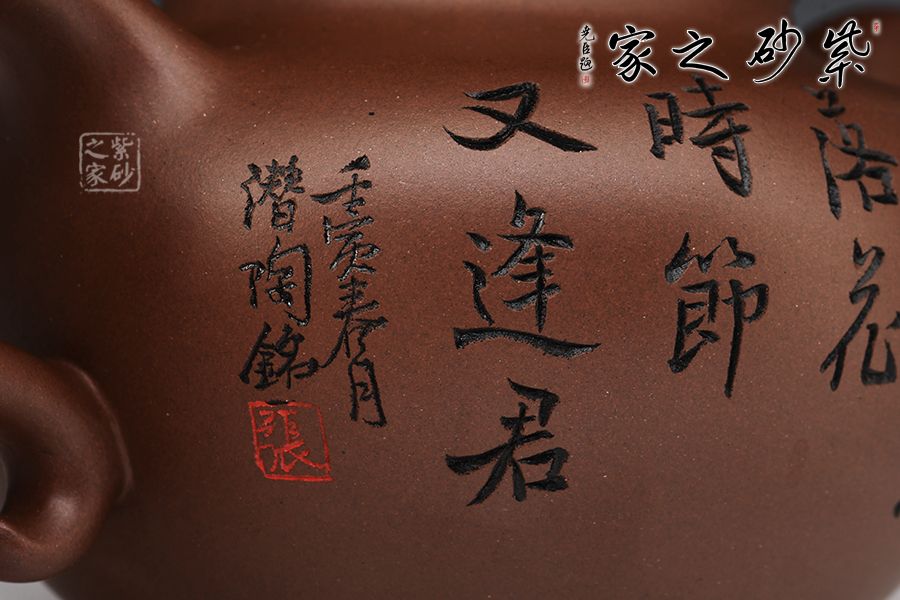 紫砂之家
堯臣題
紫砂之家
落花
時節
又逢君
壬寅春月
潛陶銘
張